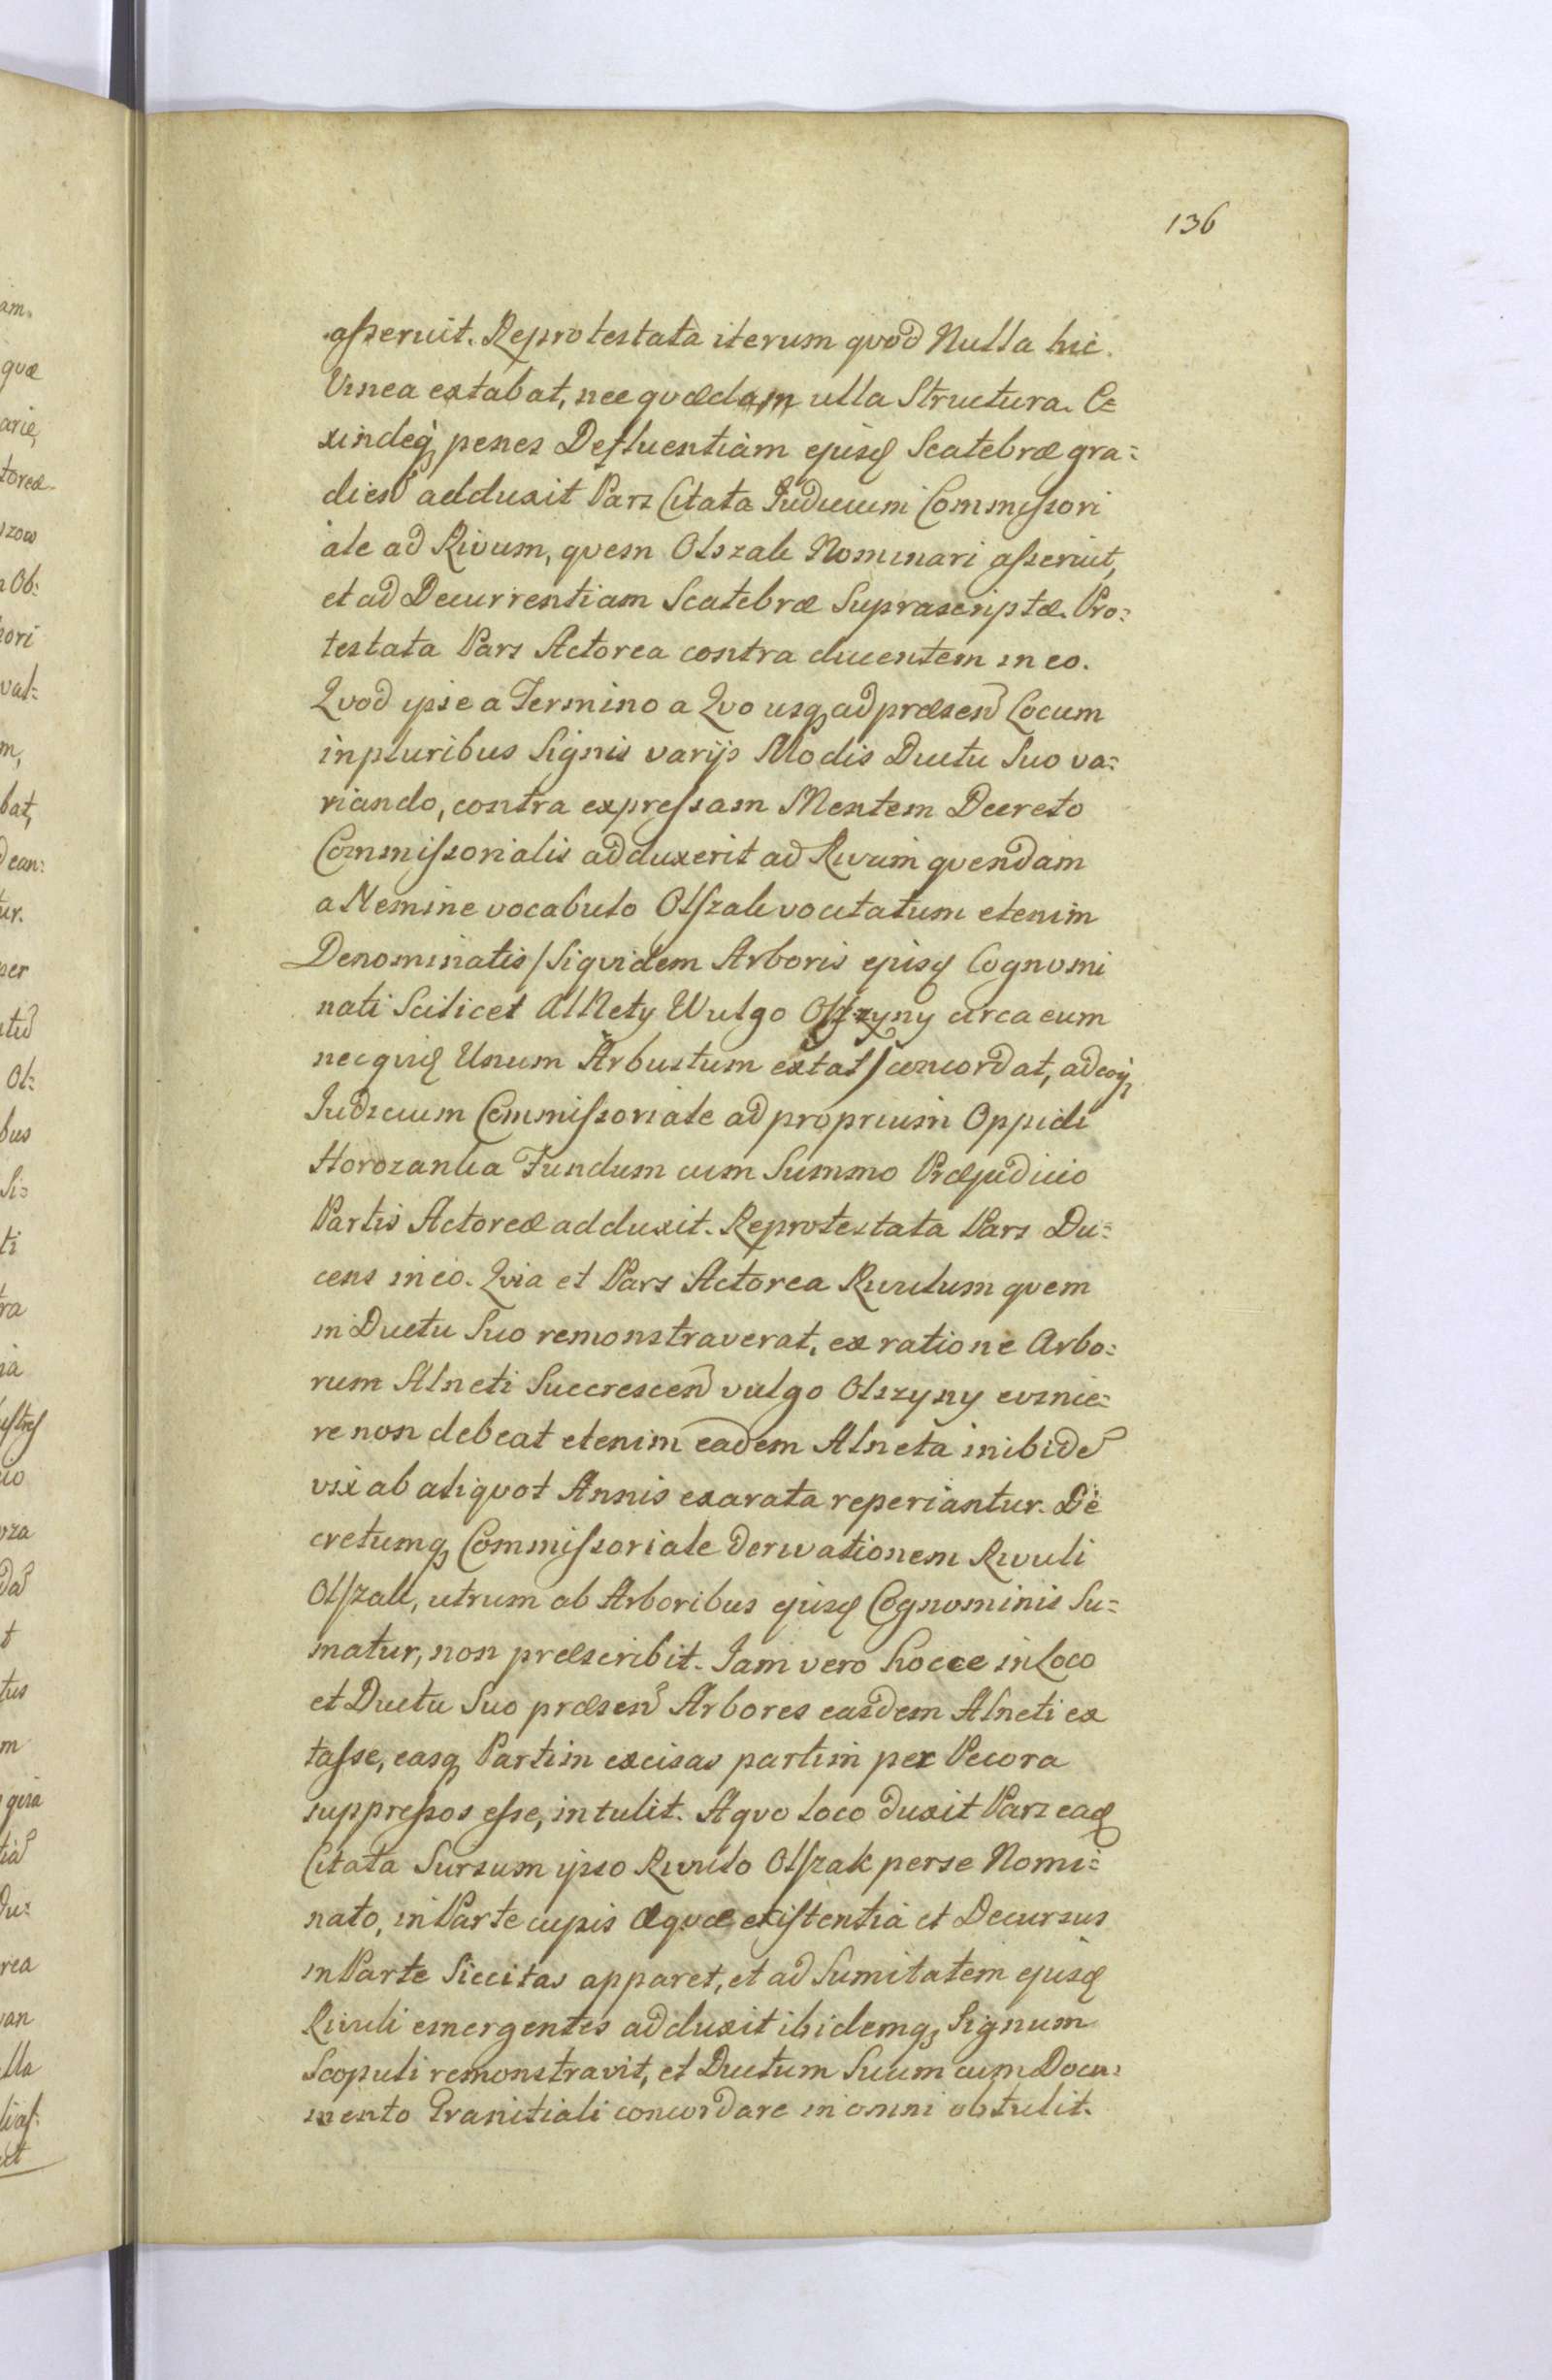 136
asseruit. Reprotestata iterum qvod Nulla hic.
Vinea extabat, nec qvædam ulla Structura. E=
xindeq, penes Defluentiam ejusd Scatebræ gra=
dien adduxit Pars Citata Iudicium Commissori
ale ad Rivum, qvem Olszak Nominari asseruit,
et ad Decurrentiam Scatebræ Suprascriptæ. Pro=
testata Pars Actorea contra ducentem in eo.
Qvod ipse a Termino a Qvo usq, ad præsen Locum
in pluribus Signis varijs Modis Ductu Suo va=
riando, contra expressam Mentem Decreto
Commissorialis adduxerit ad Rivum qvendam
a Nemine vocabulo Olszak vocitatum etenim
Denominatis / Siqvidem Arboris ejusd Cognomi
nati Scilicet Alnety Wulgo Olszyny circa eum
nec qvid Unum Arbustum extat / concordat, adeoq,
Iudicium Commissoriale ad proprium Oppidi
Horozanka Fundum cum Summo Præjudicio
Partis Actoreæ adduxit. Reprotestata Pars Du=
cens in eo. Qvia et Pars Actorea Rivulum qvem
in Ductu Suo remonstraverat, ex ratione Arbo=
rum Alneti Succrescen vulgo Olszyny evinie=
re non debeat etenim eadem Alneta inibide
vix ab aliqvot Annis exarata reperiantur. De
cretumq, Commissoriale derivationem Rivuli
Olszak, utrum ab Arboribus ejusd Cognominis Su=
matur, non præscribit. Jam vero hocce in Loco
et Ductu Suo præsen Arbores easdem Alneti ex
tasse, easq, Partim excisas partim per Pecora
suppressos esse, intulit. A qvo loco duxit Pars ead
Citata Sursum ipso Rivulo Olszak per se Nomi=
nato, in Parte cujus Aqvæ existentia et Decursus
in Parte Siccitas apparet, et ad Sumitatem ejusd
Rivuli emergentes adduxit ibidemq, Signum
Scopuli remonstravit, et Ductum Suum cum Docu=
mento Granitiali concordare in omni obtulit.